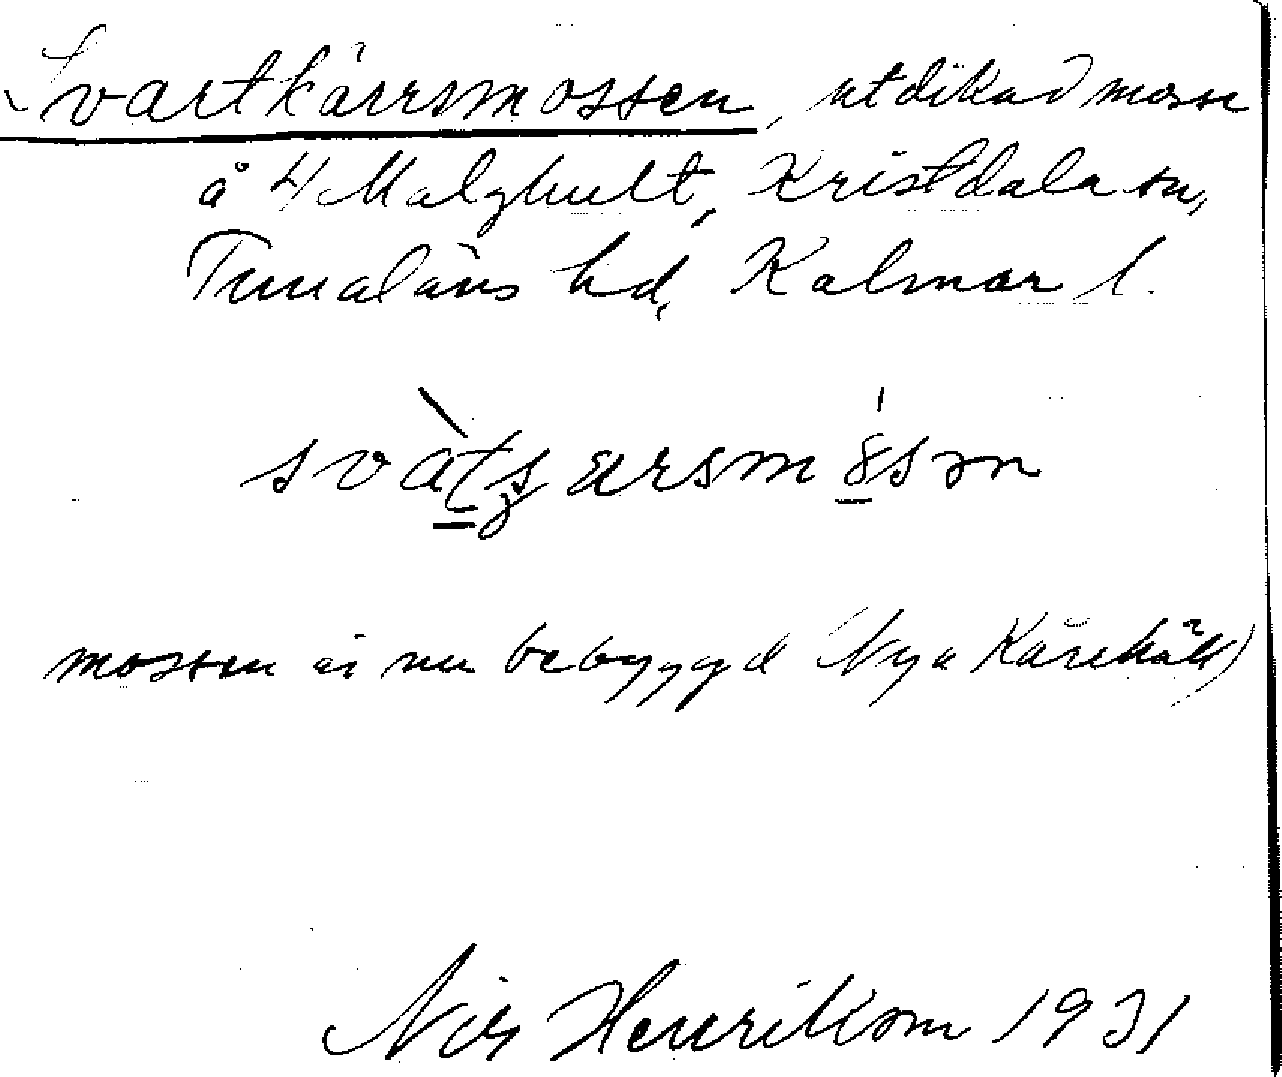 Svartkärrsmossen, utdikad mosse
å 4 Malghult, Kristdala sn,
Tunaläns hd, Kalmar l.
mossen är nu bebyggd (Nya Kärrhult)
Nils Henrikson 1931